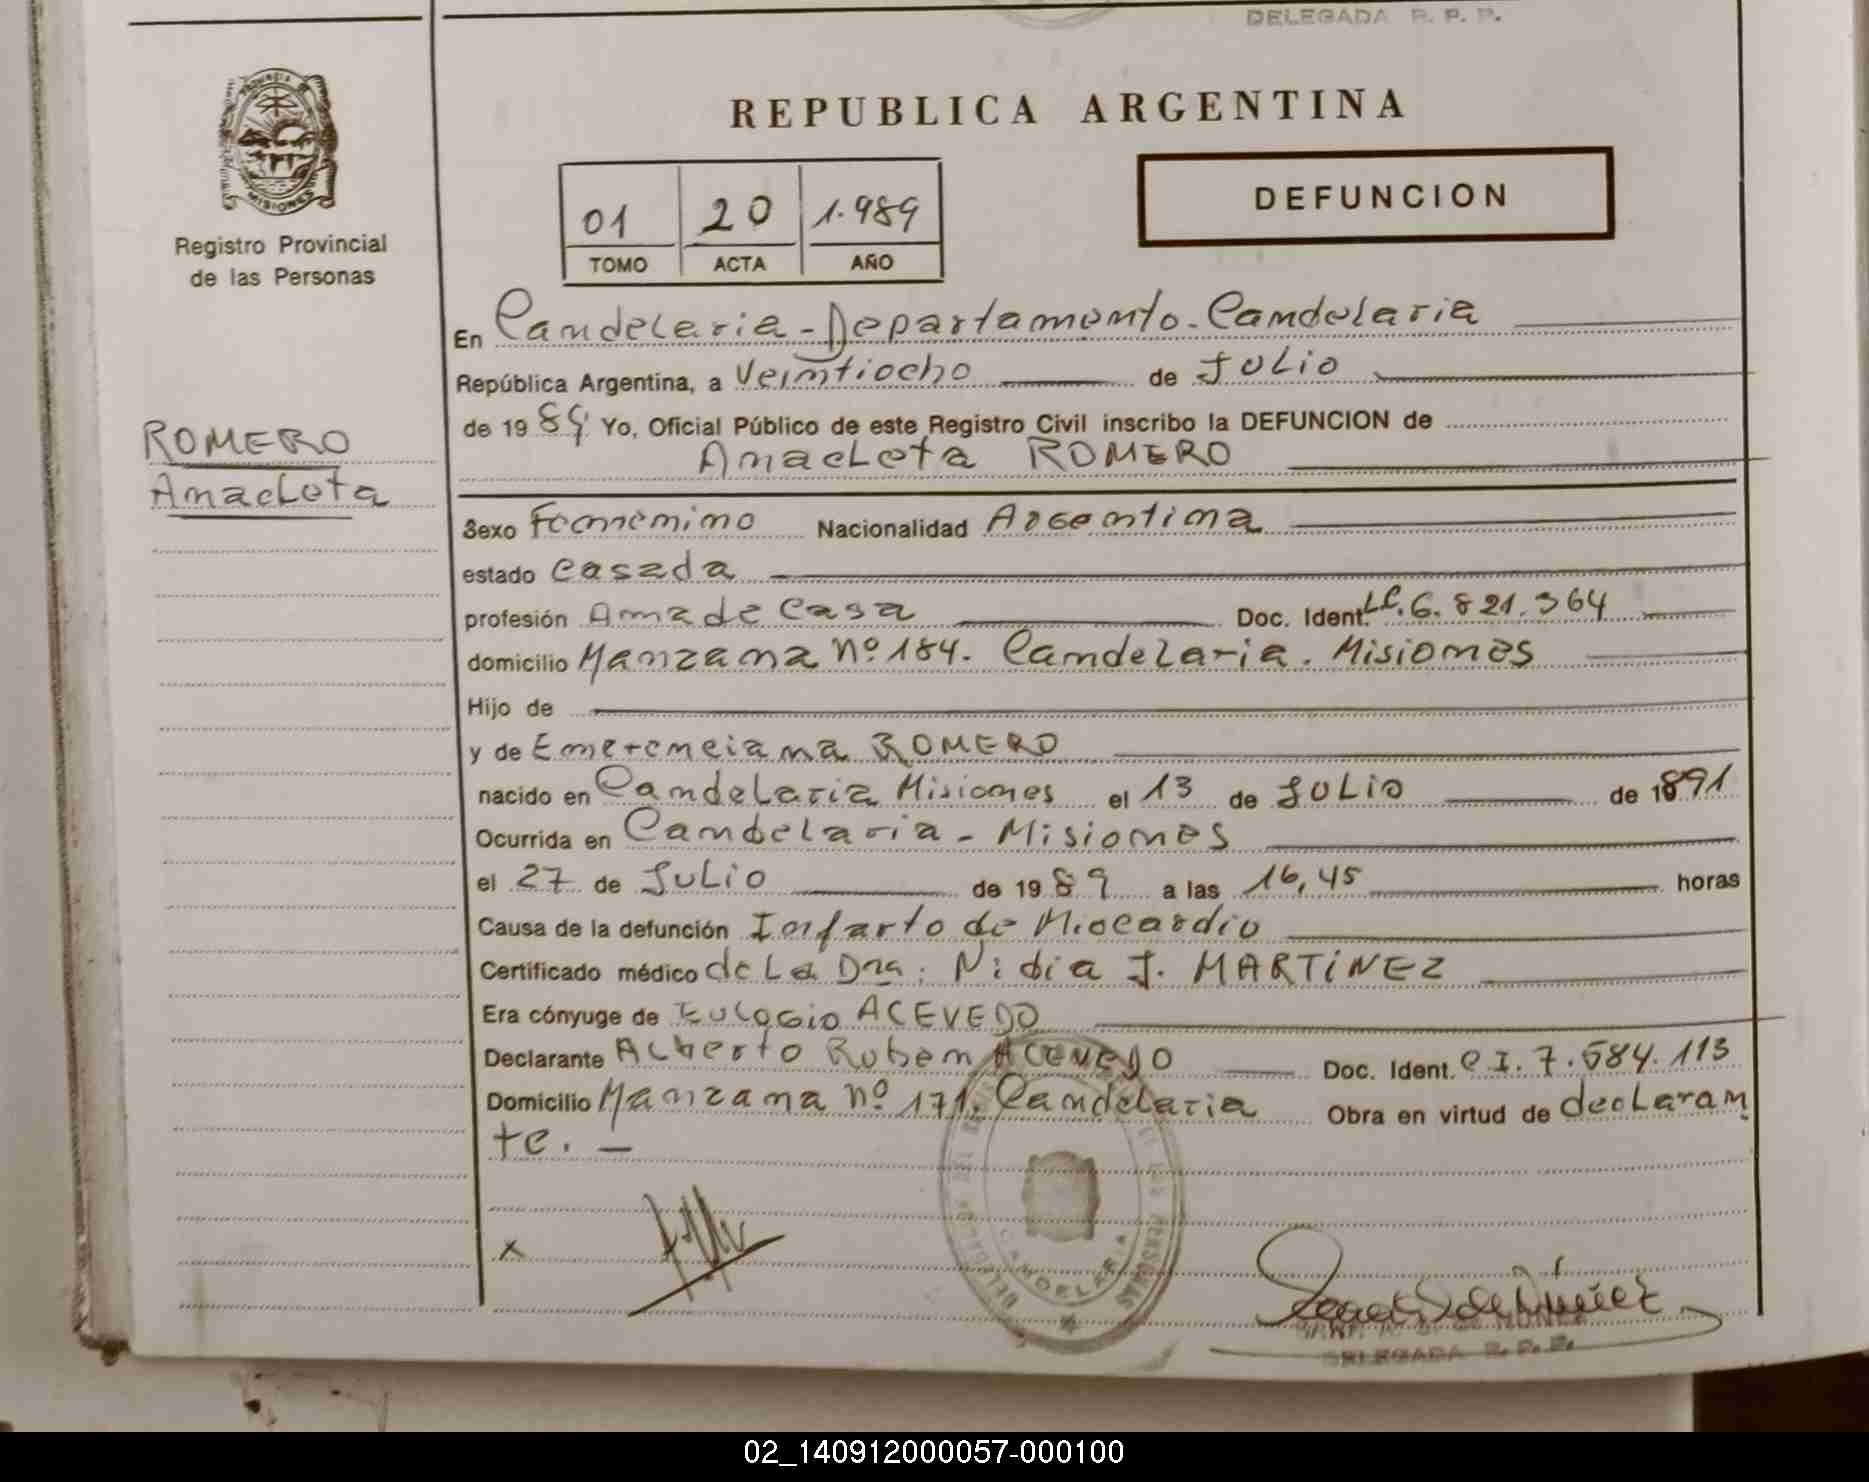 DELEGADA R. P. P.
PROVINCIA DE
MISIONES
Registro Provincial
de las Personas
REPUBLICA ARGENTINA
01 20 1.989
TOMO ACTA AÑO
DEFUNCION
En Candelaria - Departamento - Candelaria
República Argentina, a Veintiocho de Julio
de 1989 Yo, Oficial Público de este Registro Civil inscribo la DEFUNCION de
Anacleta ROMERO
ROMERO
Anacleta
Sexo Femenino Nacionalidad Argentina
estado Casada
profesión Ama de Casa Doc. Ident. LC. 6.821.364
domicilio Manzana nº 184. Candelaria. Misiones
Hijo de
y de Emerenciana ROMERO
nacido en Candelaria Misiones el 13 de Julio de 1891
Ocurrida en Candelaria - Misiones
el 27 de Julio de 1989 a las 16,45 horas
Causa de la defunción Infarto de Miocardio
Certificado médico de La Dra. Nidia J. MARTINEZ
Era cónyuge de Eulogio ACEVEDO
Declarante Alberto Ruben ACEVEDO Doc. Ident. C I. 7.684.113
Domicilio Manzana nº 171. Candelaria Obra en virtud de declaran
te. -
x
CANDELARIA
DELEGADA R. P. P.
02_140912000057-000100